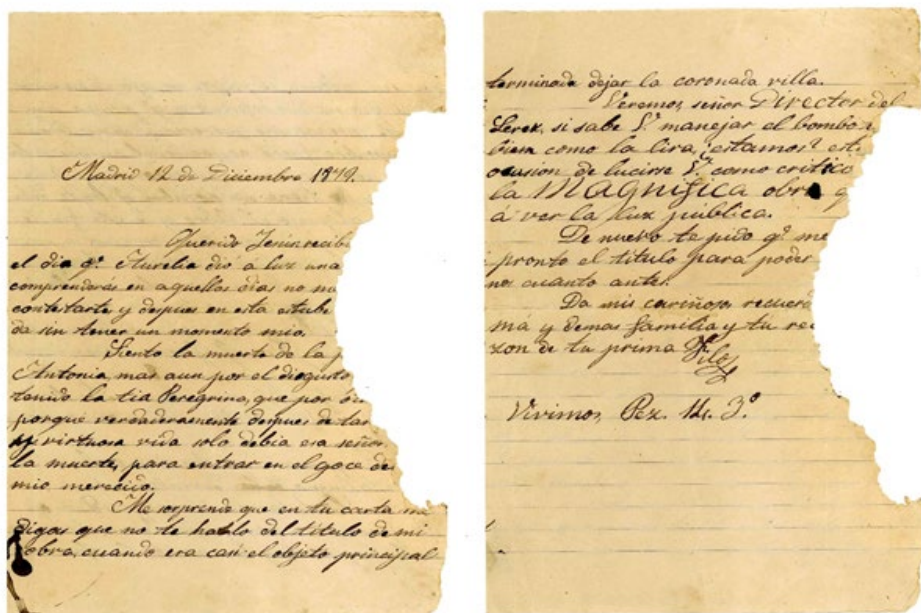 Madrid 12 de Diciembre 1879.
Querido Jenin: recibi
el dia qe. Aurelia dió á luz una
comprenderás en aquellos dias no
contestarte y despues en esta estube
da sin tener un momento mio.
Siento la muerte de la
Antonia mas aun por el disgusto
tenido la tia Peregrina, que por
porqué verdaderamente despues de tan
virtuosa vida solo debia esa señor
la muerte, para entrar en el goce de
mio merecido.
Me sorprende que en tu carta me
digas que no te hablo del titulo de mi
obra, cuando era casi el objeto principal
terminada dejar la coronada villa.
Veremos, señor Director del
Lerez, si sabe V. manejar el bombo
bien como la lira, ¿estamos? est
ocasion de lucirse V. como critico
la Magnifica obra q
á ver la luz pública.
De nuevo te pido qe. me
pronto el titulo para poder
nos cuanto antes.
Da mis cariñosos recuer
má y demas familia y tu
zon de tu prima
Vivimos, Pez. 14. 3º